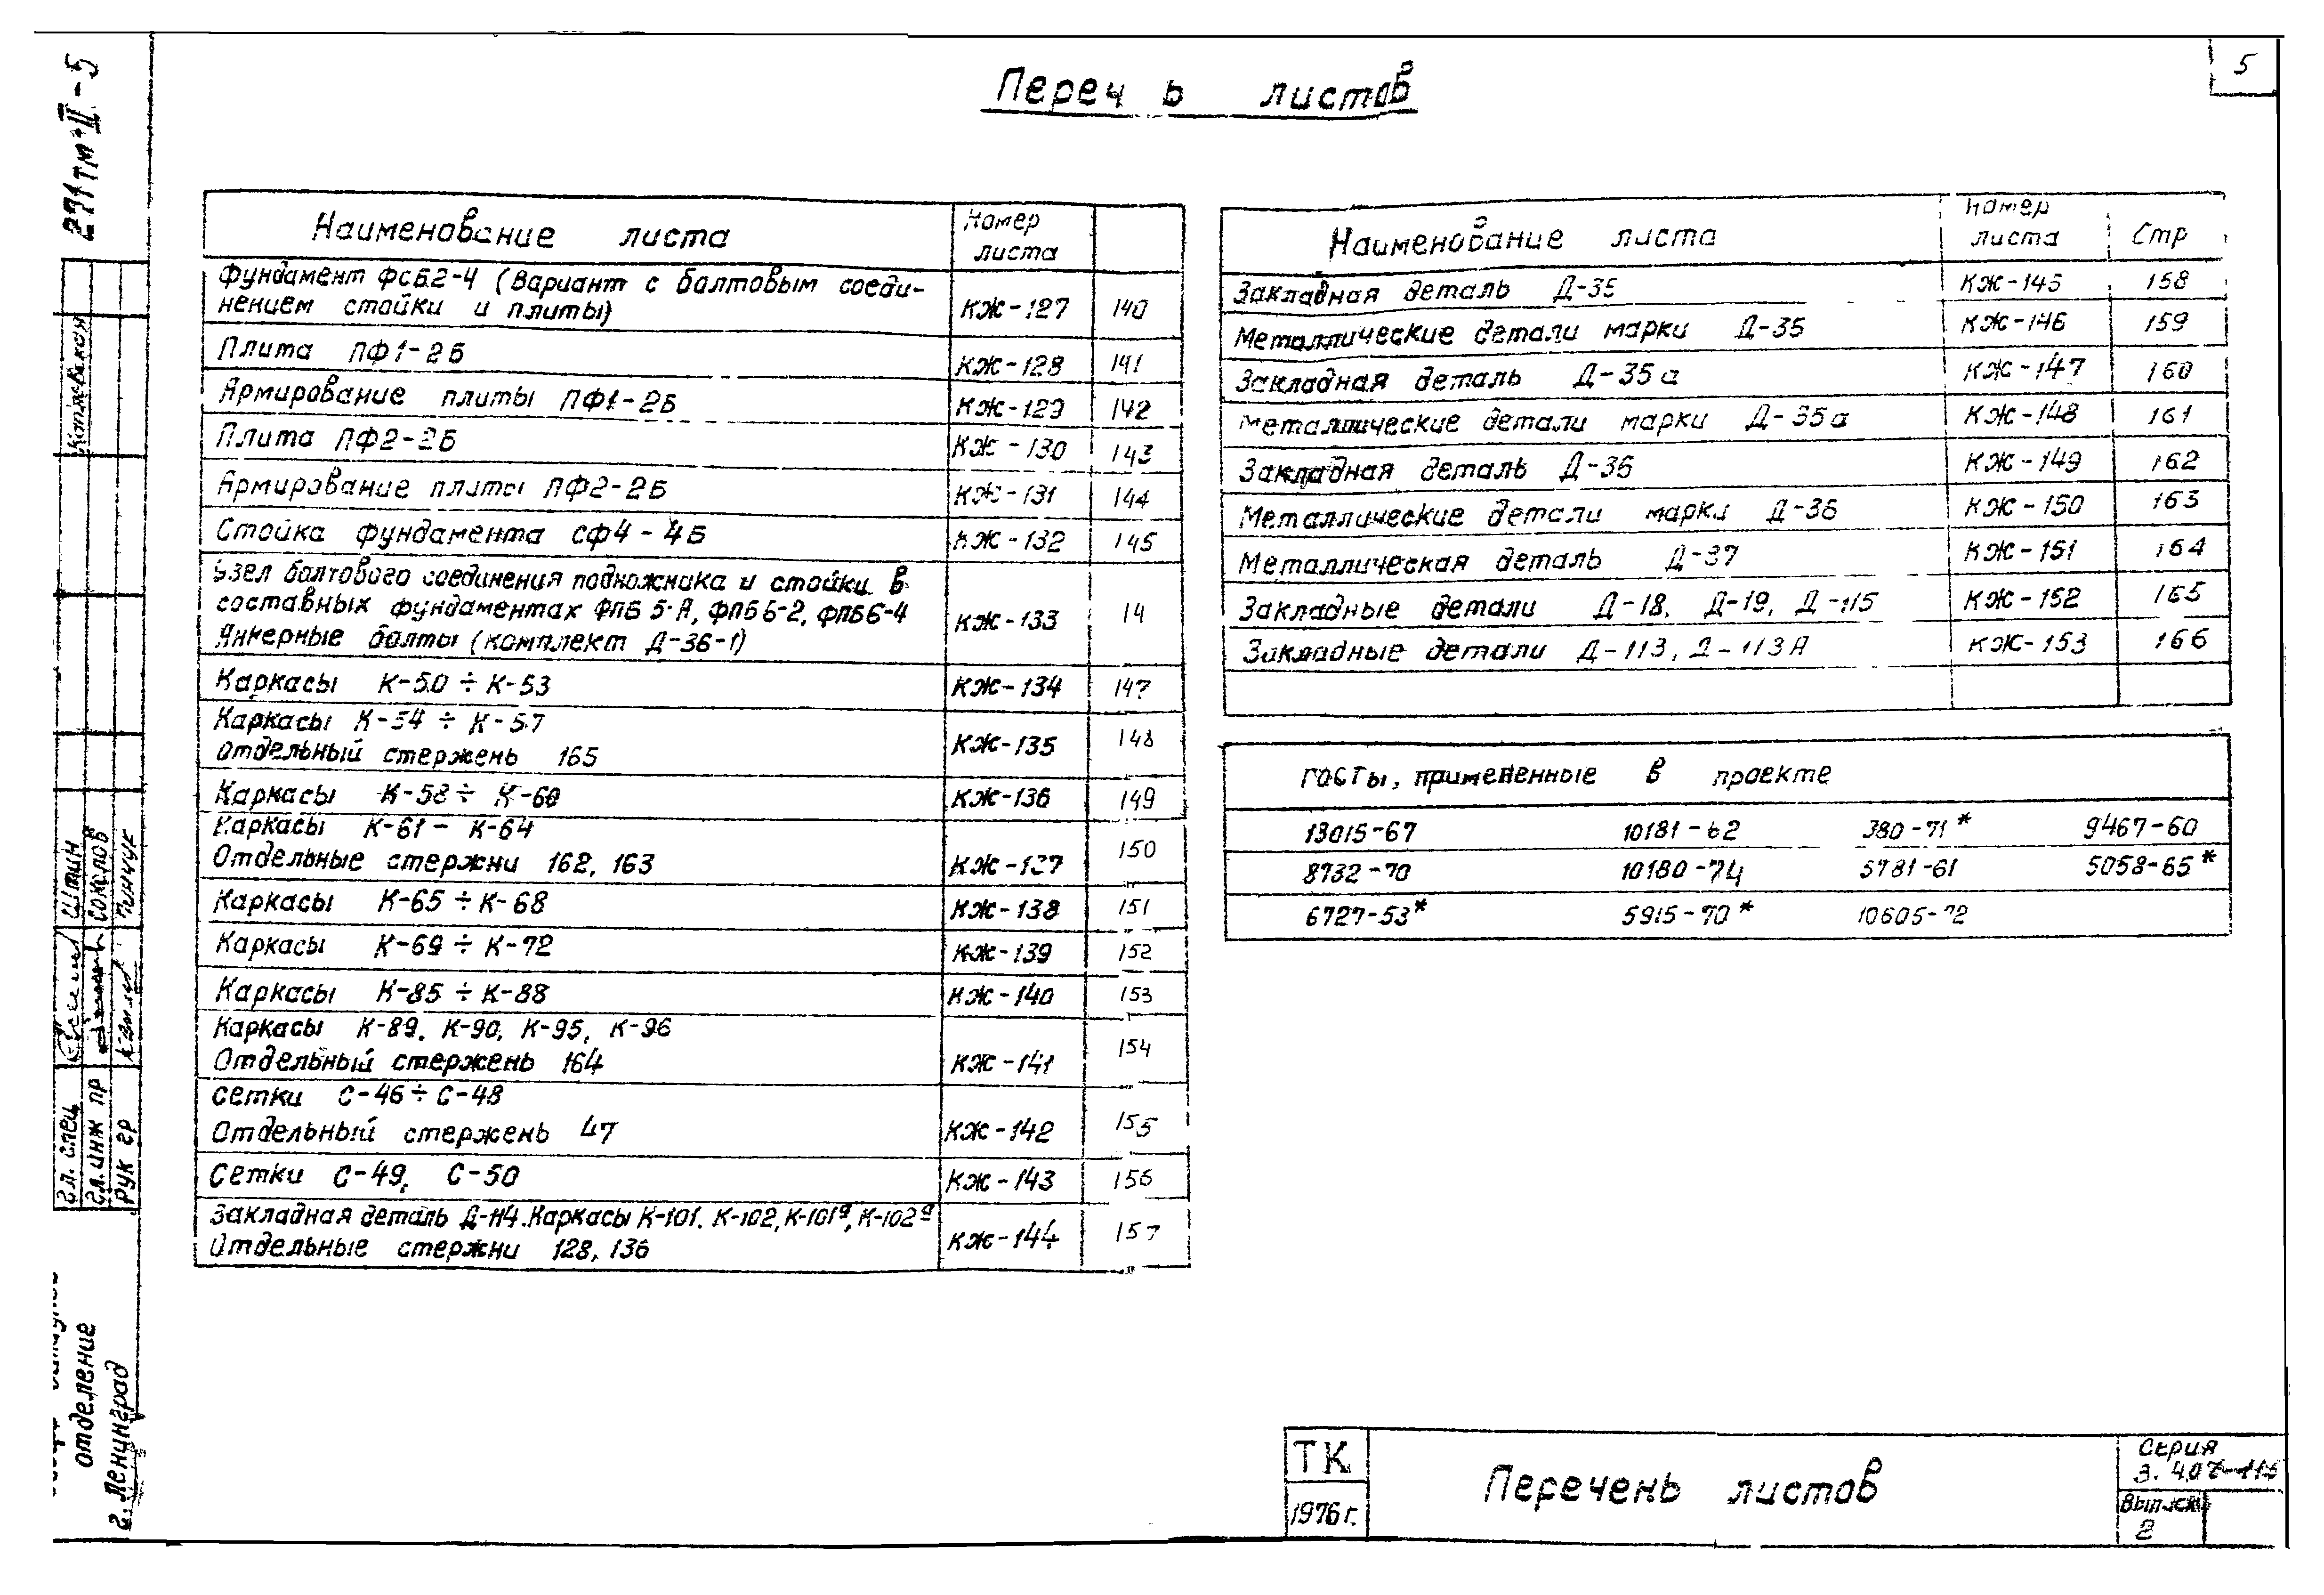 5
Переч ь листов
Наименование листа Номер листа
Фундамент ФСБ2-4 (Вариант с болтовым соеди-
нением стойки и плиты) КЖ-127 140
Плита ПФ1-2Б КЖ-128 141
Армирование плиты ПФ1-2Б КЖ-129 142
Плита ПФ2-2Б КЖ-130 143
Армирование плиты ПФ2-2Б КЖ-131 144
Стойка фундамента СФ4-4Б КЖ-132 145
Узел болтового соединения подножника и стойки в
составных фундаментах ФПБ 5-А, ФПБ6-2, ФПБ6-4 КЖ-133 14
Анкерные болты (комплект Д-36-1)
Каркасы К-50 ÷ К-53 КЖ-134 147
Каркасы К-54 ÷ К-57
Отдельный стержень 165 КЖ-135 148
Каркасы К-58 ÷ К-60 КЖ-136 149
Каркасы К-61 – К-64
Отдельные стержни 162, 163 КЖ-137 150
Каркасы К-65 ÷ К-68 КЖ-138 151
Каркасы К-69 ÷ К-72 КЖ-139 152
Каркасы К-85 ÷ К-88 КЖ-140 153
Каркасы К-89, К-90, К-95, К-96
Отдельный стержень 164 КЖ-141 154
Сетки С-46 ÷ С-48
Отдельный стержень 47 КЖ-142 155
Сетки С-49, С-50 КЖ-143 156
Закладная деталь Д-114. Каркасы К-101, К-102, К-101а, К-102а
Отдельные стержни 128, 136 КЖ-144 157
Наименование листа Номер листа Стр
Закладная деталь Д-35 КЖ-145 158
Металлические детали марки Д-35 КЖ-146 159
Закладная деталь Д-35а КЖ-147 160
Металлические детали марки Д-35а КЖ-148 161
Закладная деталь Д-36 КЖ-149 162
Металлические детали марки Д-36 КЖ-150 163
Металлическая деталь Д-37 КЖ-151 164
Закладные детали Д-18, Д-19, Д-115 КЖ-152 165
Закладные детали Д-113, Д-113А КЖ-153 166
ГОСТы, примененные в проекте
13015-67 10181-62 380-71* 9467-60
8732-70 10180-74 5781-61 5058-65*
6727-53* 5915-70* 10605-72
ТК
1976г.
Перечень листов
Серия
3.407-115
Выпуск
2
271тм-II-5
Гл. спец Штин
Гл. инж пр Соколов
Рук гр
отделение
г. Ленинград